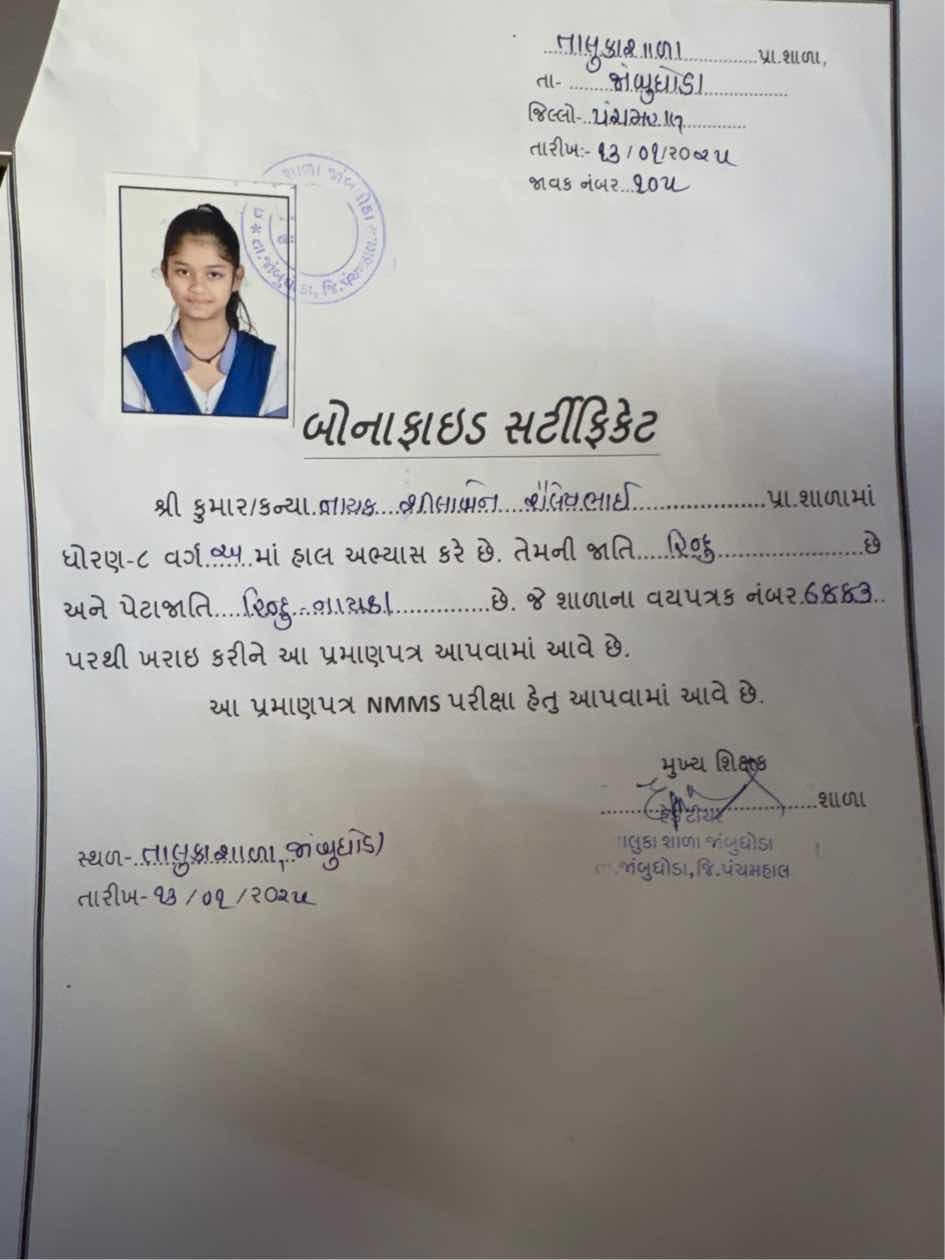 તાલુકાશાળા પ્રા.શાળા,
તા- જાંબુઘોડા
જિલ્લો- પંચમહાલ
તારીખ:- ૧૩/૦૧/૨૦૨૫
જાવક નંબર...૨૦૫
શાળા જાંબુઘોડા * તા.જાંબુઘોડા, જિ.પંચમહાલ
બોનાફાઇડ સર્ટીફિકેટ
શ્રી કુમાર/કન્યા.નાયક શીલાબેન શૈલેષભાઈ પ્રા.શાળામાં
ધોરણ-૮ વર્ગ અ માં હાલ અભ્યાસ કરે છે. તેમની જાતિ હિન્દુ છે
અને પેટાજાતિ હિન્દુ - નાયકા છે. જે શાળાના વયપત્રક નંબર
પરથી ખરાઇ કરીને આ પ્રમાણપત્ર આપવામાં આવે છે.
આ પ્રમાણપત્ર NMMS પરીક્ષા હેતુ આપવામાં આવે છે.
મુખ્ય શિક્ષક
શાળા
હેડ ટીચર
તાલુકા શાળા જાંબુઘોડા
તા.જાંબુઘોડા,જિ.પંચમહાલ
સ્થળ- તાલુકાશાળા, જાંબુઘોડા
તારીખ- ૧૩/૦૧/૨૦૨૫